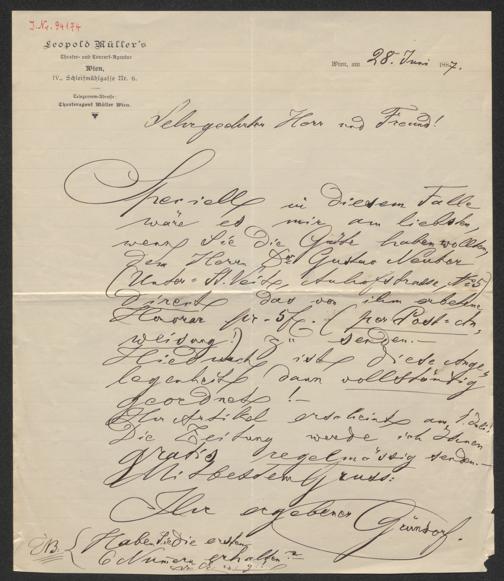 J. Nr. 94174
Leopold Müller's
Theater- und Concert-Agentur
Wien,
IV., Schleifmühlgasse Nr. 6.
Telegramm-Adresse:
Theateragent Müller Wien.
Wien, am 28. Juni 1887.
Sehrgeehrter Herr und Freund!
Speciell in diesem Falle
wäre es mir am liebsten,
wenn Sie die Güte haben wollten,
dem Herrn Dr Gustav
(Unter-St. Veit, Nr. 5)
direct das von ihm erbetene
Honorar pr. 5 f. (per Post-An-
weisung!) zu senden.—
Hiednach ist diese Ange-
legenheit dann vollständig
geordnet!—
Ihr Artikel erscheint am 1. Juli!
Die Zeitung werde ich Ihnen
gratis regelmässig senden.—
Mit bestem Gruss:
Ihr ergebener
NB. Haben Sie die ersten
6 Numern erhalten?—